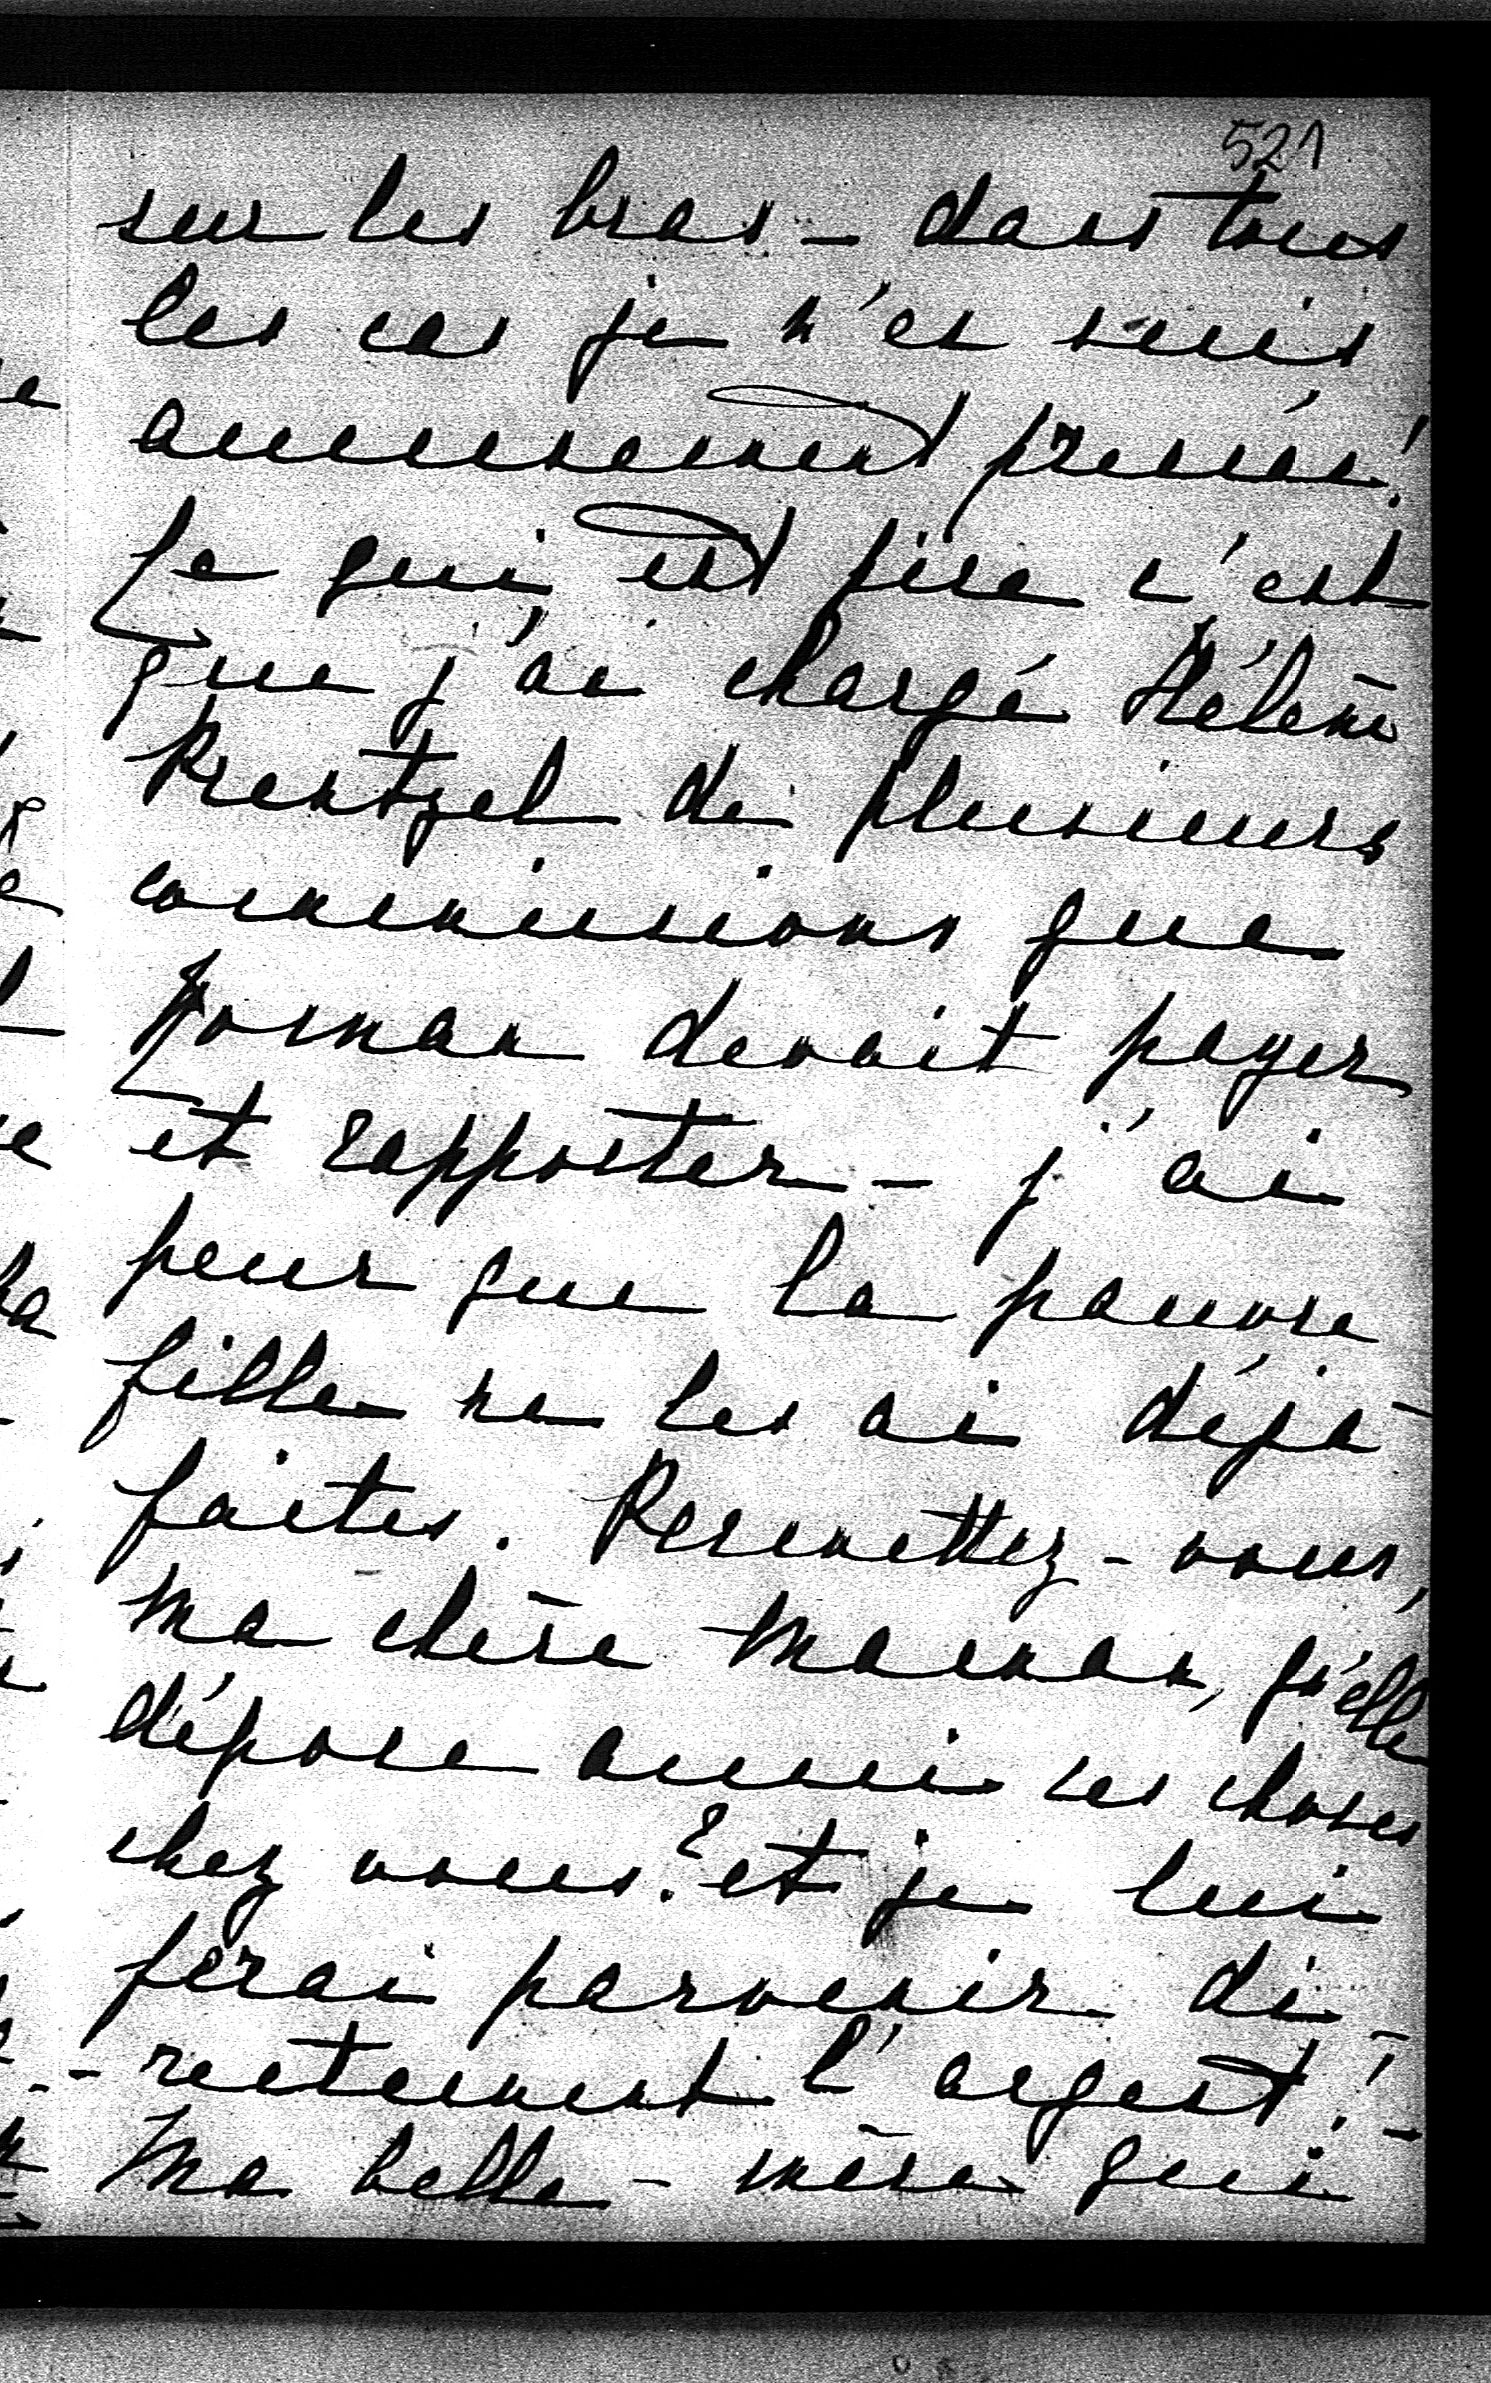 521
sur les bras - dans tous
les cas je n'en suis
aucunement pressée!
Ce qui est pire c'est
que j'ai chargé Hélène
de plusieurs
commissions que
devait payer
et rapporter - j'ai
peur que la pauvre
fille ne les ai déjà
faites. Permettez-vous,
ma chère Maman, qu'elle
dépose aussi ces choses
chez vous? et je lui
ferai parvenir di-
-rectement l'argent! -
Ma belle-mère qui